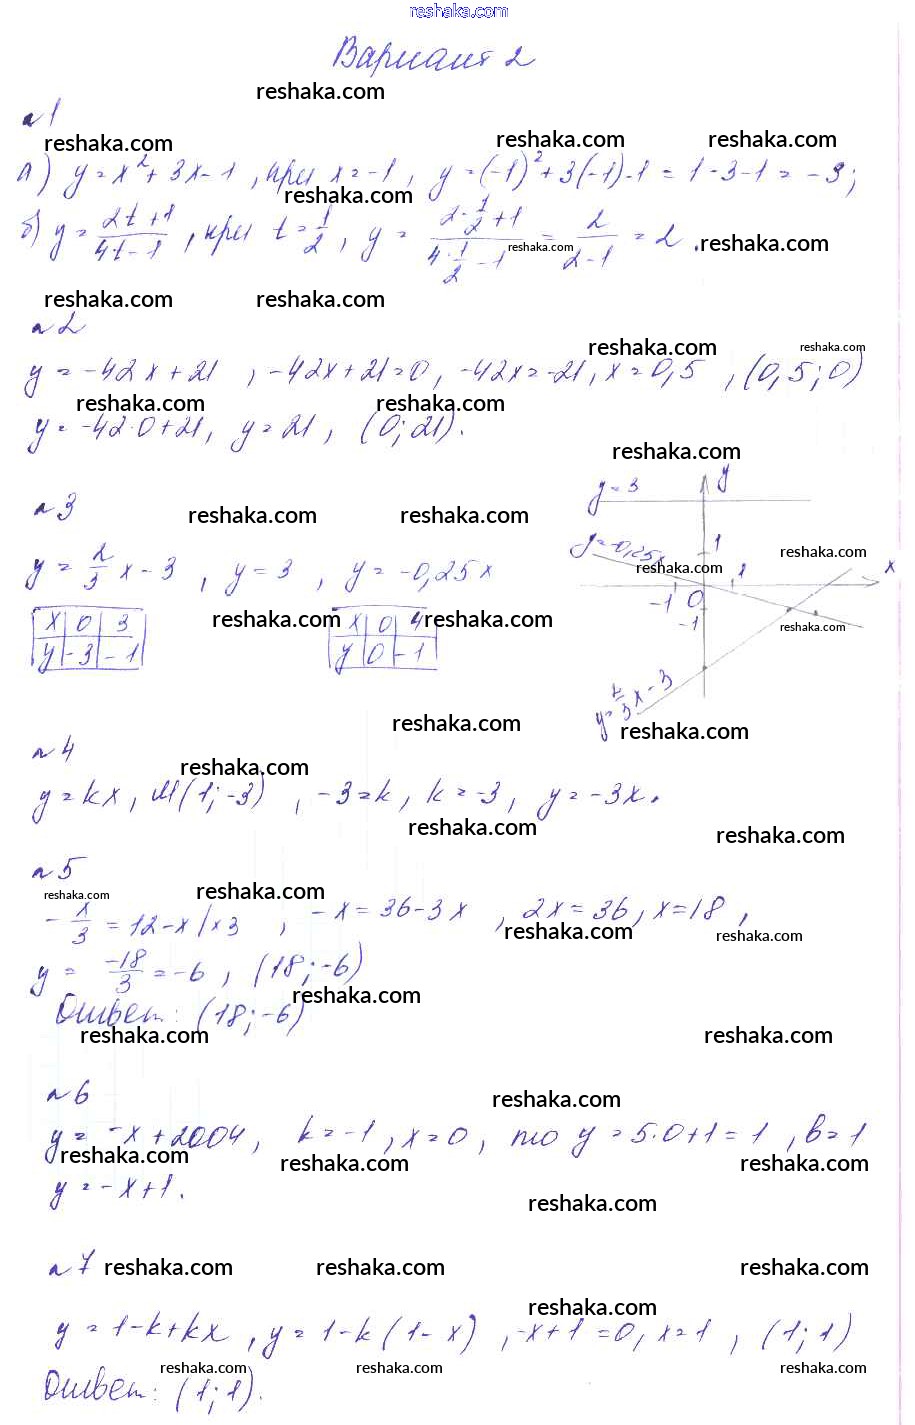 reshaka.com
Вариант 2
reshaka.com
№1
reshaka.com reshaka.com reshaka.com
а) y = x² + 3x - 1, при x = -1, y = (-1)² + 3(-1) - 1 = 1 - 3 - 1 = -3;
reshaka.com
б) y = (2t + 1)/(4t - 1), при t = 1/2, y = (2·1/2 + 1)/(4·1/2 - 1) = 2/(2-1) = 2.
reshaka.com reshaka.com
reshaka.com reshaka.com
№2
reshaka.com reshaka.com
y = -42x + 21, -42x + 21 = 0, -42x = -21, x = 0,5, (0,5; 0)
reshaka.com reshaka.com
y = -42·0 + 21, y = 21, (0; 21).
reshaka.com
№3
reshaka.com reshaka.com
y = 2/3 x - 3, y = 3, y = -0,25x
reshaka.com reshaka.com
x 0 3
y -3 -1
x 0 4
y 0 -1
y = 3
y
y = -0,25x
1
reshaka.com
reshaka.com
x
-1 0 1
-1
reshaka.com
y = 2/3 x - 3
reshaka.com
reshaka.com
№4
reshaka.com
y = kx, M(1; -3), -3 = k, k = -3, y = -3x.
reshaka.com reshaka.com
№5
reshaka.com reshaka.com
-x/3 = 12 - x |×3, -x = 36 - 3x, 2x = 36, x = 18,
reshaka.com reshaka.com
y = -18/3 = -6, (18; -6)
reshaka.com
Ответ: (18; -6)
reshaka.com reshaka.com
№6
reshaka.com
y = -x + 2004, k = -1, x = 0, то y = 5·0 + 1 = 1, b = 1
reshaka.com reshaka.com reshaka.com
y = -x + 1.
reshaka.com
№7
reshaka.com reshaka.com reshaka.com
reshaka.com
y = 1 - k + kx, y = 1 - k(1 - x), -x + 1 = 0, x = 1, (1; 1)
reshaka.com reshaka.com reshaka.com
Ответ: (1; 1).